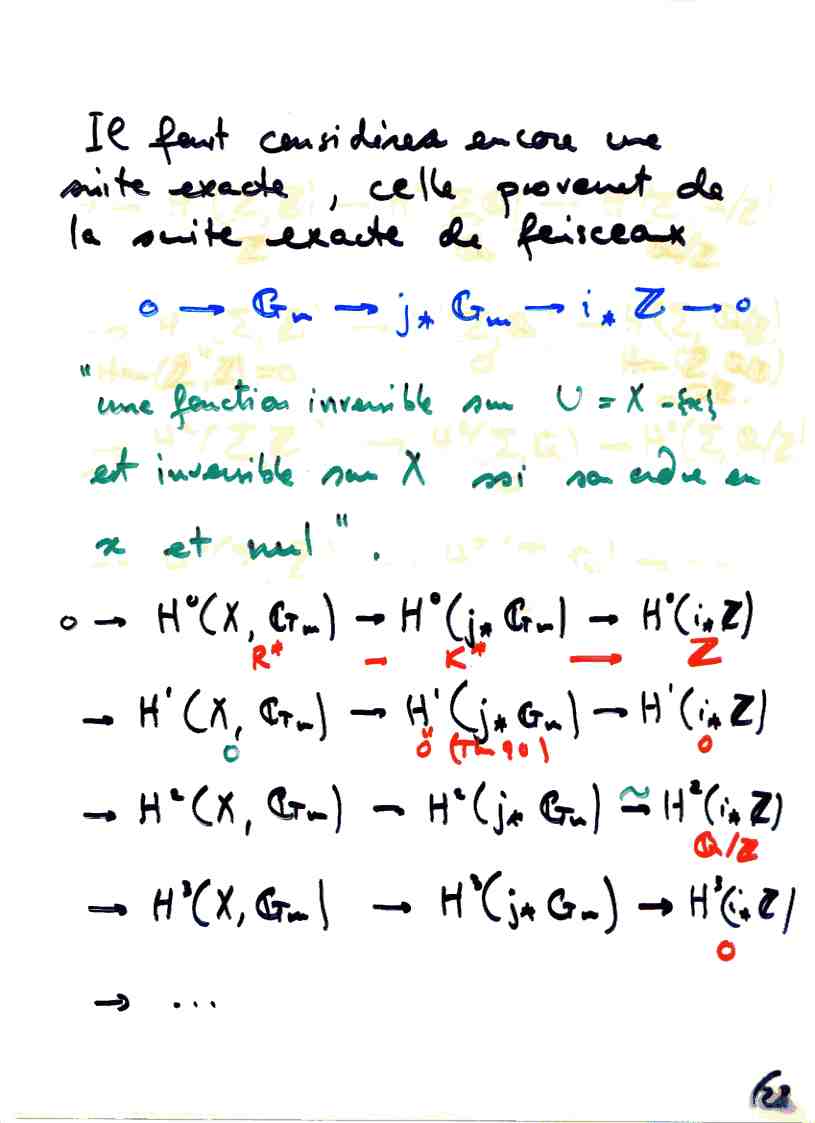 Il faut considérer encore une
suite exacte, celle provenant de
la suite exacte de faisceaux
0 → 𝔾m → j* 𝔾m → i* ℤ → 0
"une fonction inversible sur U = X - {x}
est inversible sur X ssi son ordre en
x est nul".
0 → H⁰(X, 𝔾m) → H⁰(j* 𝔾m) → H⁰(i* ℤ)
R* → K* → ℤ
→ H¹(X, 𝔾m) → H¹(j* 𝔾m) → H¹(i* ℤ)
0 0 (Th 90) 0
→ H²(X, 𝔾m) → H²(j* 𝔾m) ⥲ H²(i* ℤ)
ℚ/ℤ
→ H³(X, 𝔾m) → H³(j* 𝔾m) → H³(i* ℤ)
0
→ ...